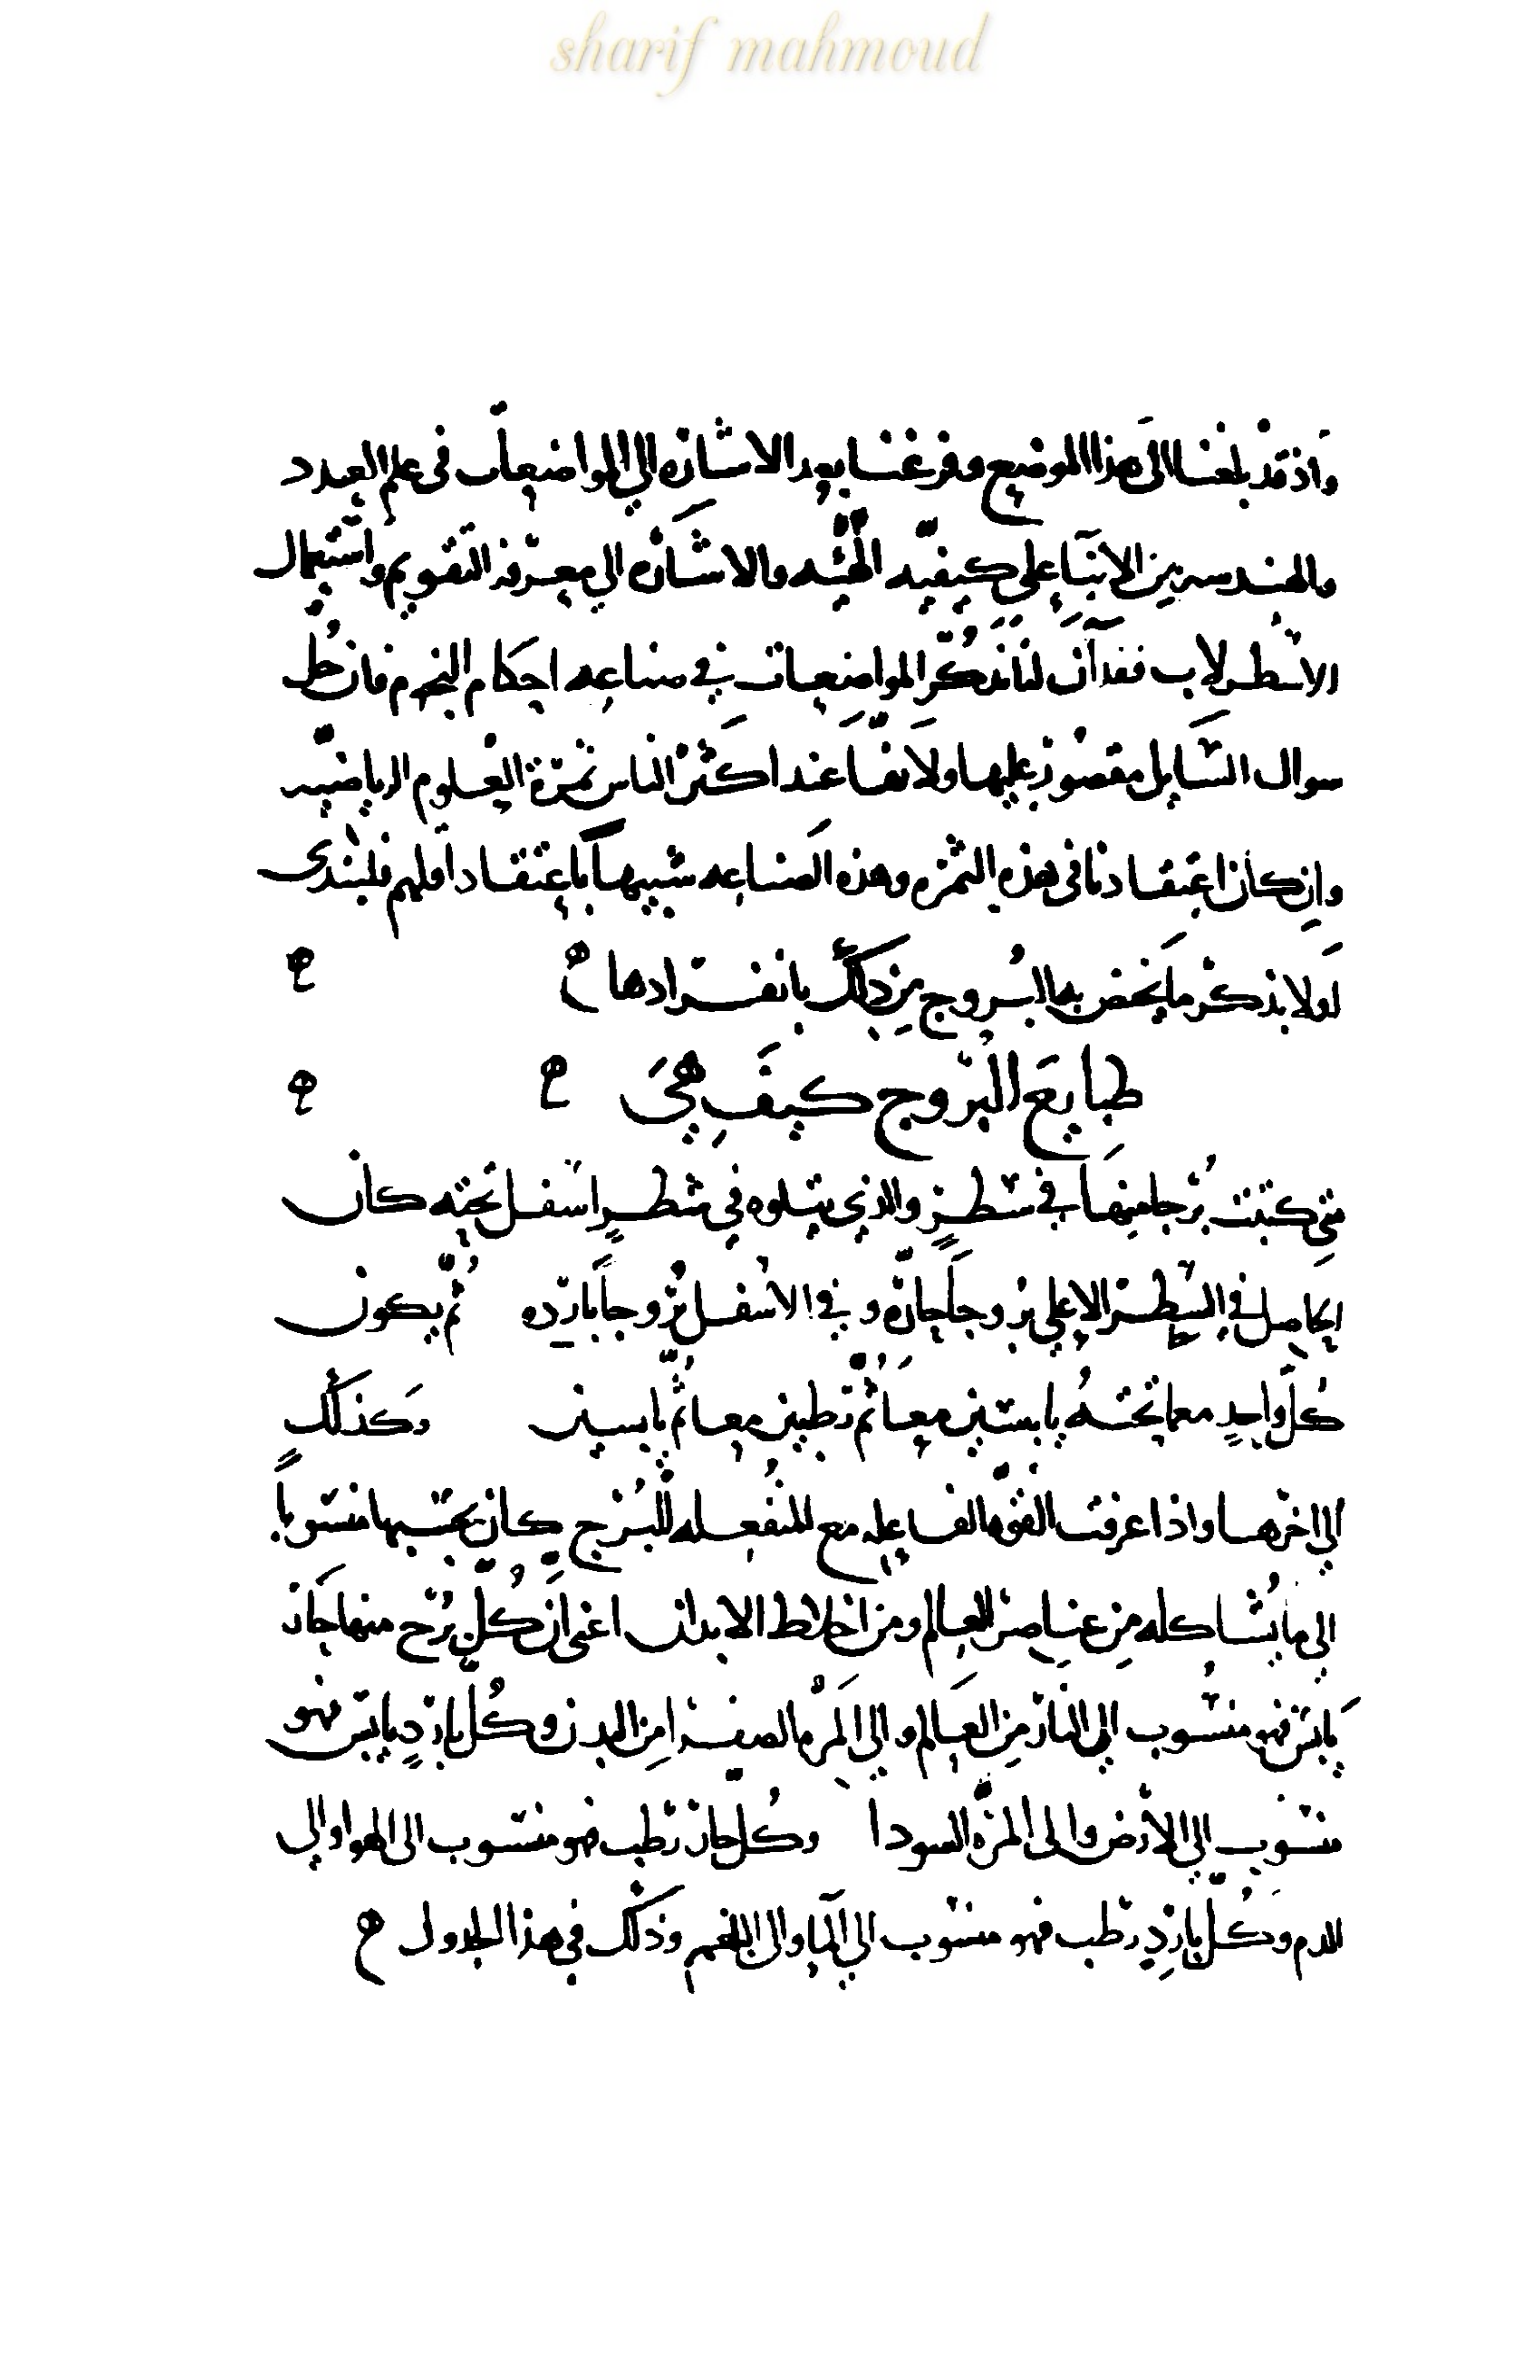 sharif mahmoud
واذ قد بلغنا الى هذا الموضع وفرغنا بعد الاشاره الي المواضعات فى علم العدد
والهندسه من الانبآ علي كيفيّه الهيئه والاشاره الي معرفه التقويم واستعمال
الاسطرلاب فقد آن لنا نذكر المواضعات في صناعه احكام النجوم فان جلّ
سوال السايل مقصور عليها ولانها عند اكثر الناس ثمرة العلوم الرياضيه
وان كان اعتقادنا فى هذه الثمره وهذه الصناعه شبيها باعتقاد اقلهم فلنبتدى
اولا بذكر ما يختص بها البروج من ذلك بانفرادها ه
طبايع البروج كيف هي ه
متي كتبت برجا منها في سطرٍ والذي يتلوه في سطرٍ اسفل تحته كان
الحاصل في السطر الاعلي بروجا حارّه وفي الاسفل بروجا بارده ثمّ يكون
كلّ واحدٍ مع ما تحته يابسين معا ثمّ رطبين معا ثمّ يابسين وكذلك
الي اخرها واذا عرفت القوه الفاعله مع المنفعله للبرج كان بحسبها منسوباً
الي ما يشاكله من عناصر العالم ومن اخلاط الابدان اعنى ان كلّ برج منها حار
يابس فهو منسوب الي النار من العالم والي المره الصفرا من البدن وكل باردٍ يابس فهو
منسوب الي الارض والى المرّه السودا وكل حار رطب فهو منسوب الى الهوا والي
الدم وكلّ باردٍ رطب فهو منسوب الي المآ والى البلغم وذلك في هذا الجدول ه